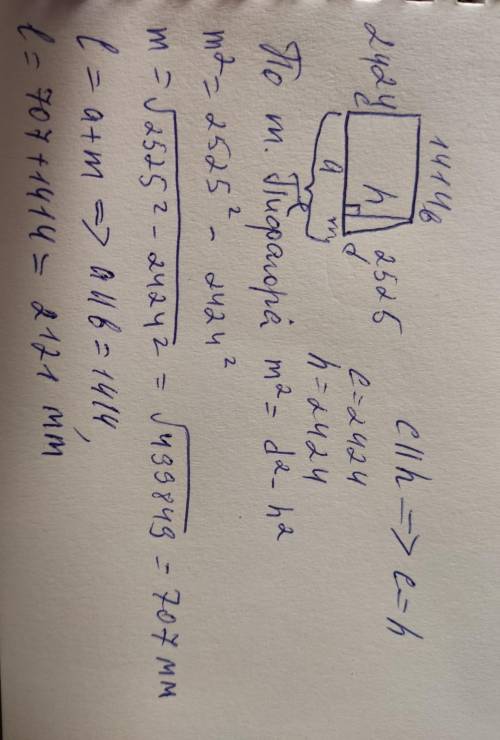 1414 b
2424 c
h
2525
d
a
m
l
c || h => c = h
c = 2424
h = 2424
По т. Пифагора m² = d² - h²
m² = 2525² - 2424²
m = √2525² - 2424² = √499849 = 707 мм
l = a + m => a || b = 1414,
l = 707 + 1414 = 2121 мм